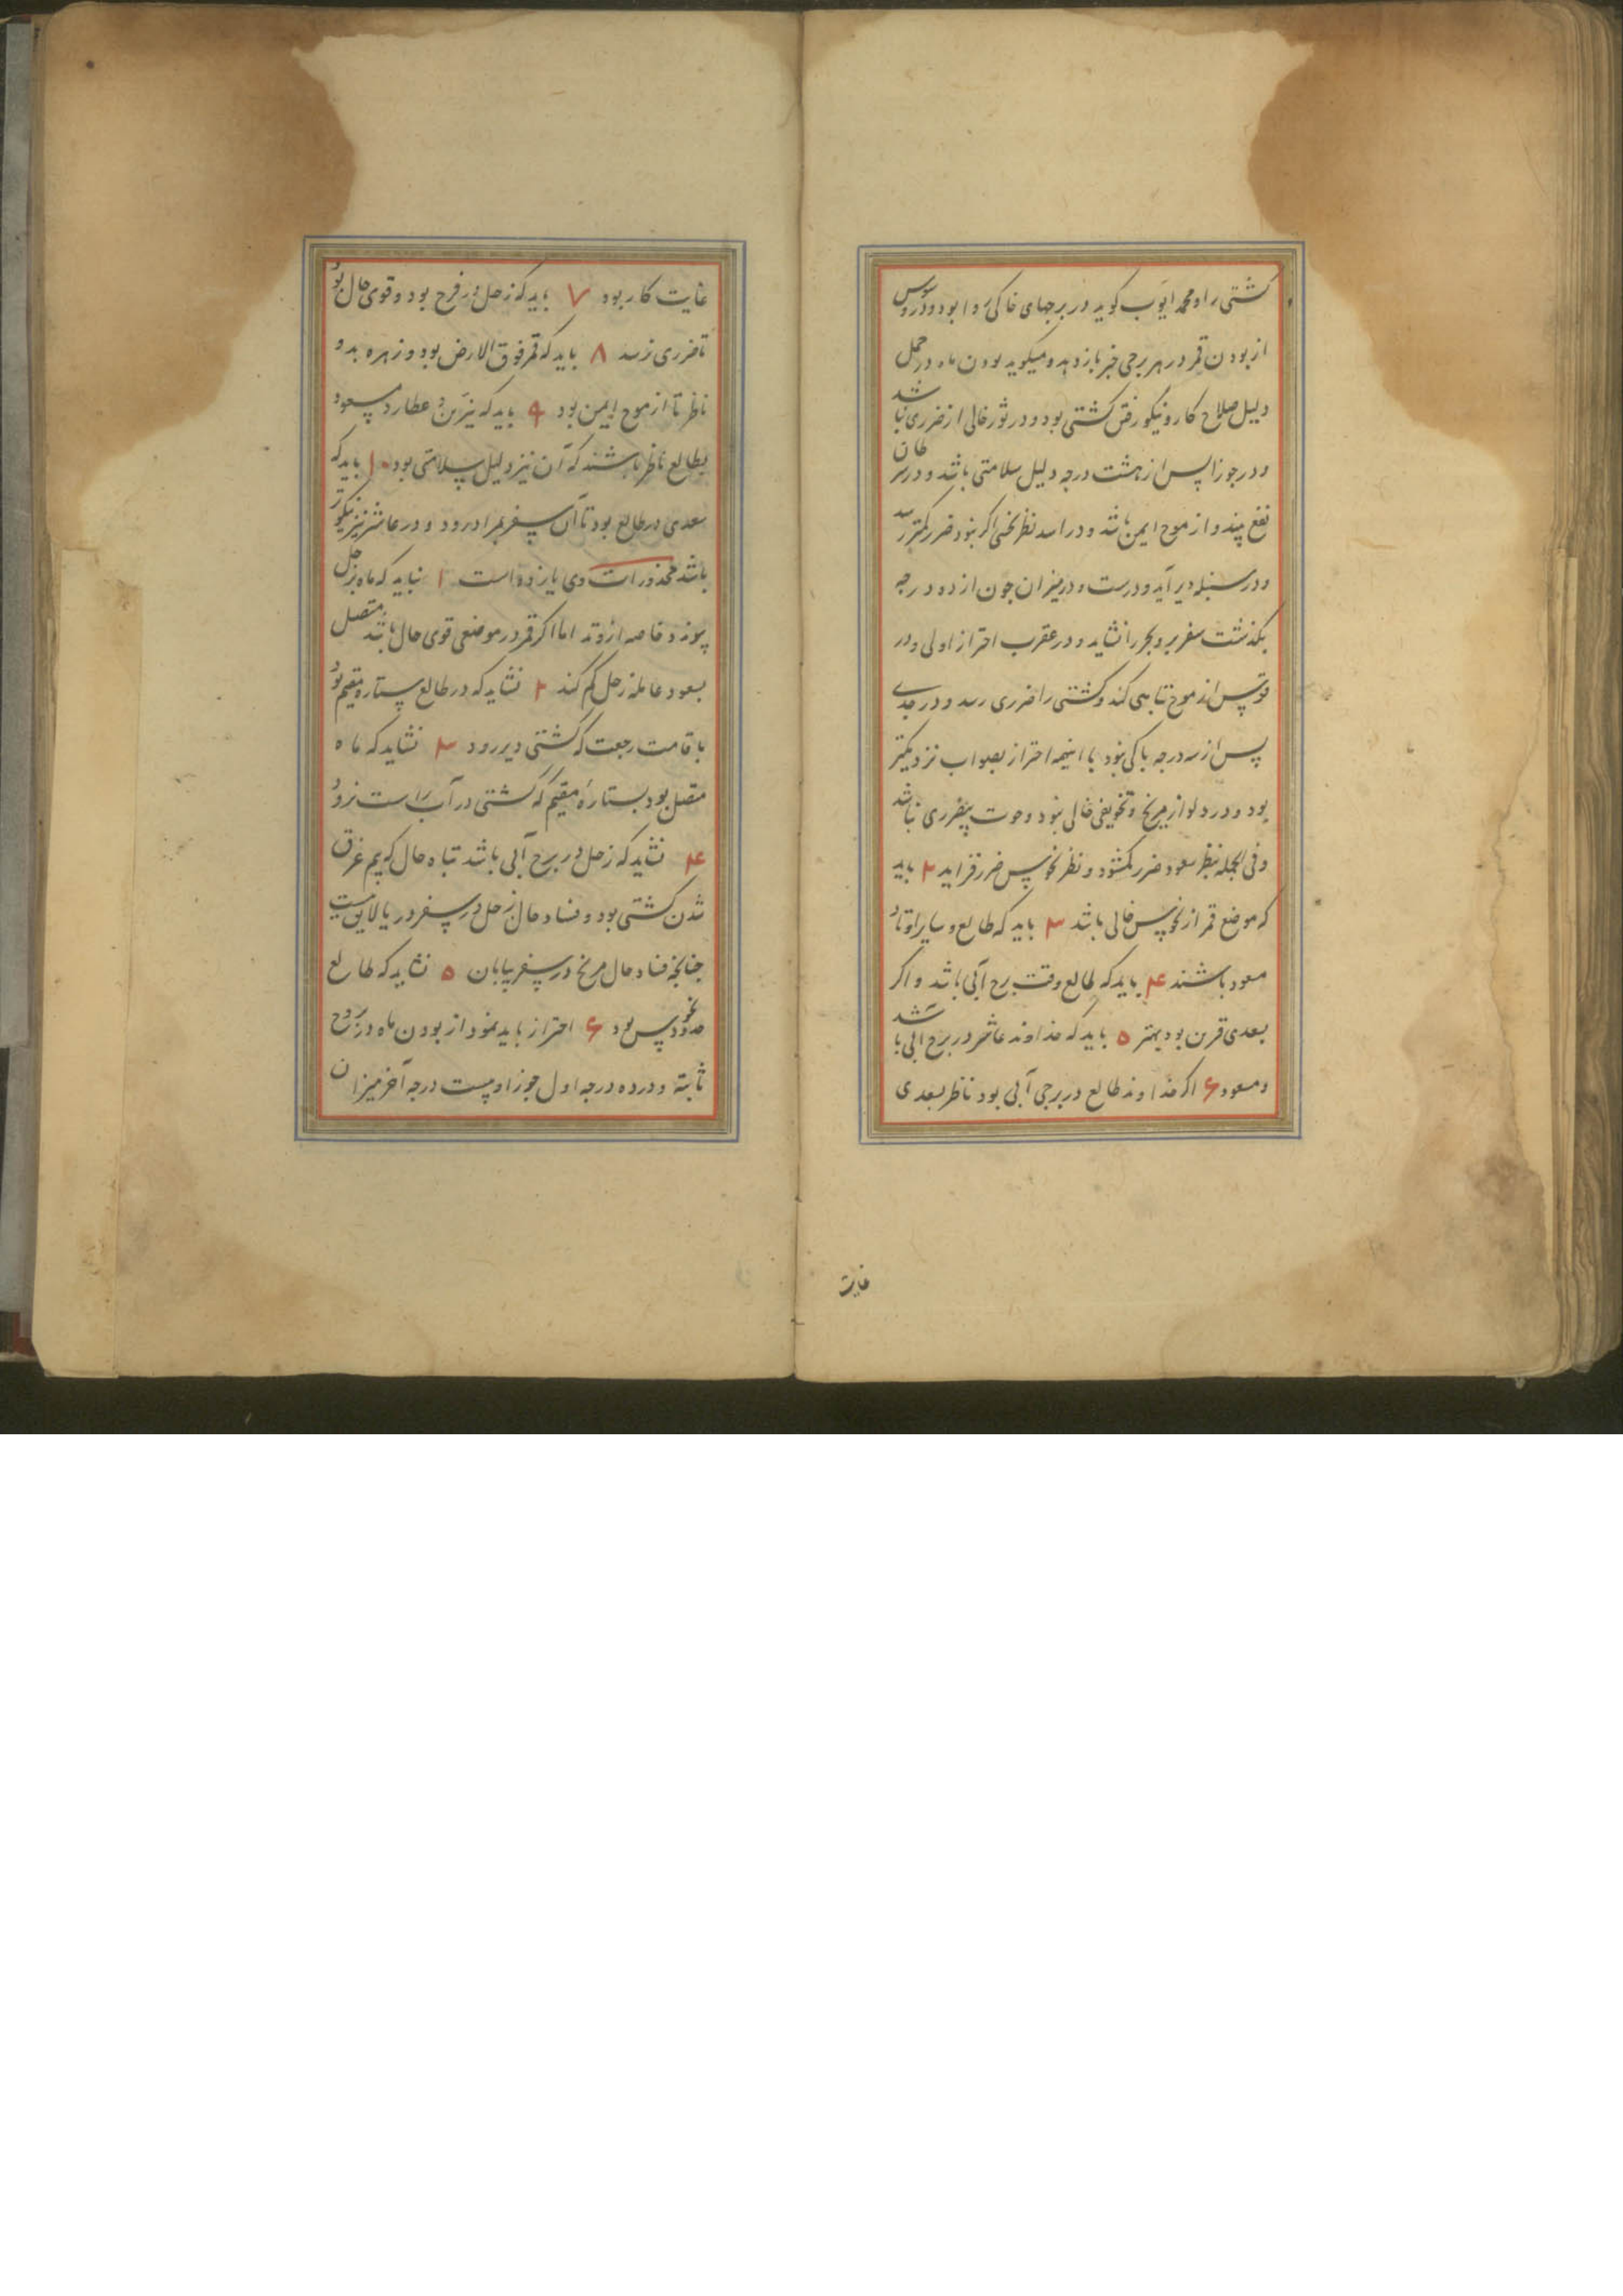 کشتی را و محمد ایوب کوید در برجهای خاکی روا بود و دروسوس
از بودن قمر در هر برجی خبر باز دهد و میکوید بودن ماه در حمل
دلیل صلاح کار و نیکو رفتن کشتی بود و در ثور خالی از ضرری نباشد
و در جوزا پس از هشت درجه دلیل سلامتی باشد و در سرطان
نفع بیند و از موج ایمن باشد و در اسد نظر نحس اکر نبود ضرر کمتر رسد
و در سنبله دیر آید و درست و در میزان چون از ده درجه
بکذشت سفر بر و بحر را نشاید و در عقرب احتراز اولی و در
قوس از موج تباهی کند و کشتی را ضرری رسد و در جدی
پس از سه درجه باکی نبود با اینهمه احتراز بصواب نزدیکتر
بود و در دلو از مریخ و تخویفی خالی نبود و حوت بیضرری نباشد
و فی الجمله بنظر سعود ضرر کم شود و نظر نحوس ضرر فزاید ۲ باید
که موضع قمر از نحوس خالی باشد ۳ باید که طالع و سایر اوتاد
مسعود باشند ۴ باید که طالع وقت برج آبی باشد و اکر
بسعدی قرین بود بهتر ۵ باید که خداوند عاشر در برج آبی باشد
و مسعود ۶ اکر خداوند طالع در برجی آبی بود ناظر بسعدی
غایت
غایت کار بود ۷ باید که زحل در فرح بود و قوی حال بود
تا ضرری نرسد ۸ باید که قمر فوق الارض بود و زهره بدو
ناظر تا از موج ایمن بود ۹ باید که نیرین و عطارد مسعود
بطالع ناظر باشند که آن نیز دلیل سلامتی بود ۱۰ باید که
سعدی در طالع بود تا آن سفر بمراد رود و در عاشر نیز نیکوتر
باشد محذورات وی یازده است ۱ نباید که ماه بزحل
پیوندد خاصه از وتد اما اکر قمر در موضعی قوی حال باشد متصل
بسعود غایله زحل کم کند ۲ نشاید که در طالع ستاره مقیم بود
باقامت رجعت که کشتی دیر رود ۳ نشاید که ماه
متصل بود بستارهٔ مقیم که کشتی در آب راست نرود
۴ نشاید که زحل در برج آبی باشد تباه حال که بیم غرق
شدن کشتی بود و فساد حال زحل در سفر دریا لایق نیست
چنانچه فساد حال مریخ در سفر بیابان ۵ نشاید که طالع
حدود نحوس بود ۶ احتراز باید نمود از بودن ماه در بروج
ثابتة و در ده درجه اول جوزا و بیست درجه آخر میزان